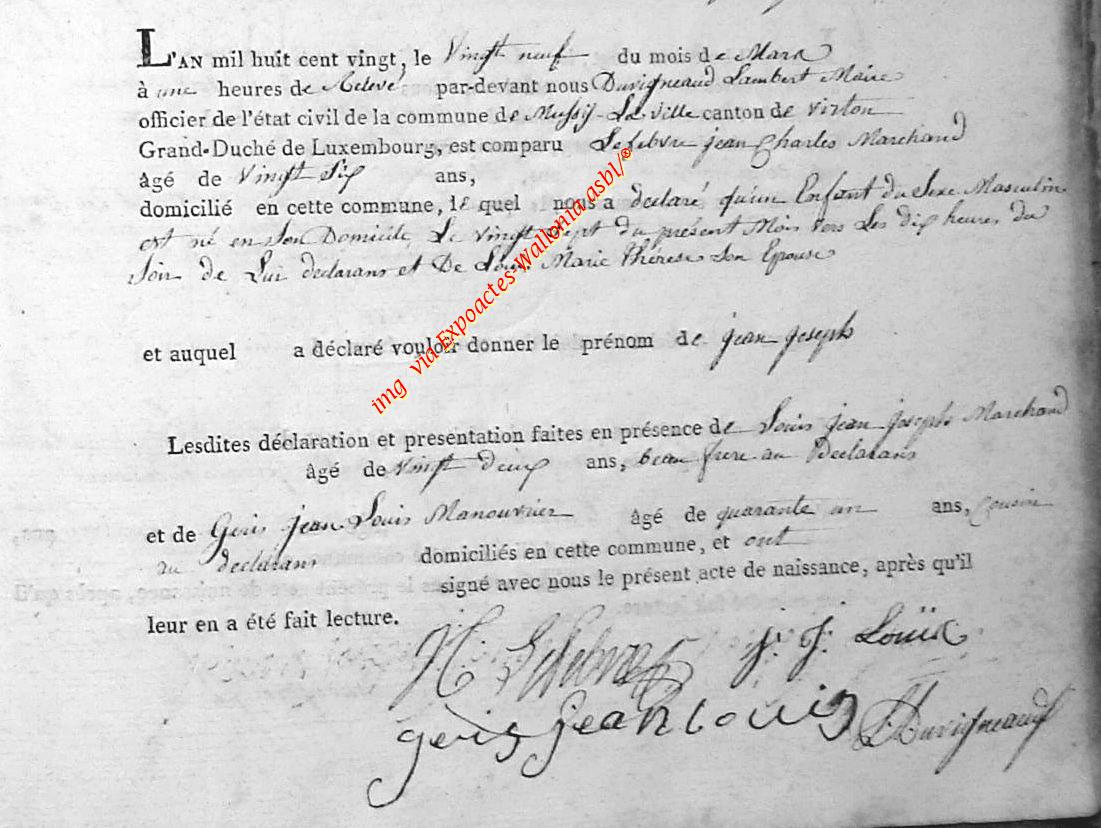 L'AN mil huit cent vingt, le Vingt neuf du mois de Mars
à une heures de Relevé par-devant nous Duvigneaud Lambert Maire
officier de l'état civil de la commune de Mussy-La Ville canton de Virton
Grand-Duché de Luxembourg, est comparu Lefebvre jean Charles Marchand
âgé de Vingt Six ans,
domicilié en cette commune, le quel nous a declaré qu'un Enfant du Sexe Masculin
est né en Son Domicile Le Vingt Sept du présent Mois vers Les dix heures du
Soir de Lui declarans et De Louis Marie Thérese Son Epouse
et auquel a déclaré vouloir donner le prénom de jean joseph
Lesdites déclaration et presentation faites en présence de Louis jean joseph Marchand
âgé de vingt deux ans, beau frere au Declarans
et de Geris jean Louis Manouvrier âgé de quarante un ans, Cousin
au declarans domiciliés en cette commune, et ont
signé avec nous le présent acte de naissance, après qu'il
leur en a été fait lecture.
Lefebvre j. j. Louis
geris jean louis Duvigneaud
img via Expoactes-Wallonia.asbl/®